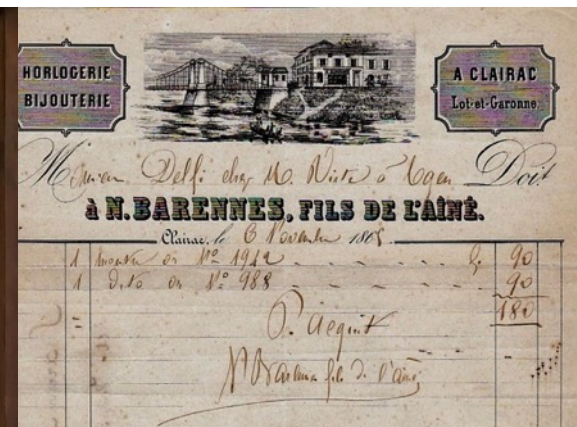 HORLOGERIE
BIJOUTERIE
A CLAIRAC
Lot-et-Garonne.
Monsieur Delfi chez M. à Agen Doit
à N. BARENNES, FILS DE L'AÎNÉ.
Clairac, le 6 Novembre 186
1 montre or Nº 1942 90
1 dito or Nº 988 90
180
P. acquit
N Barennes fils de l'aîné